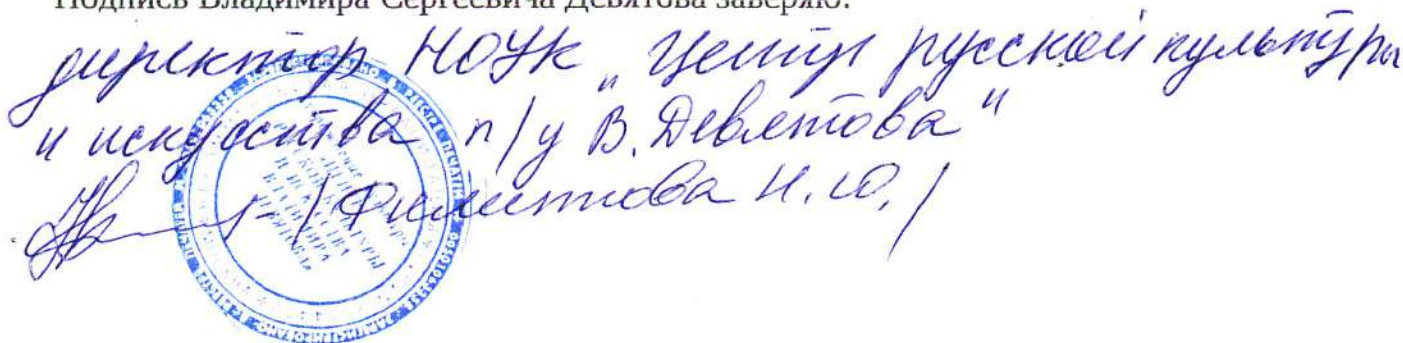 Подпись Владимира Сергеевича Девятова заверяю:
директор НОУК "Центр русской культуры
и искусства п/у В. Девятова"
/Филиппова Н.Ю./